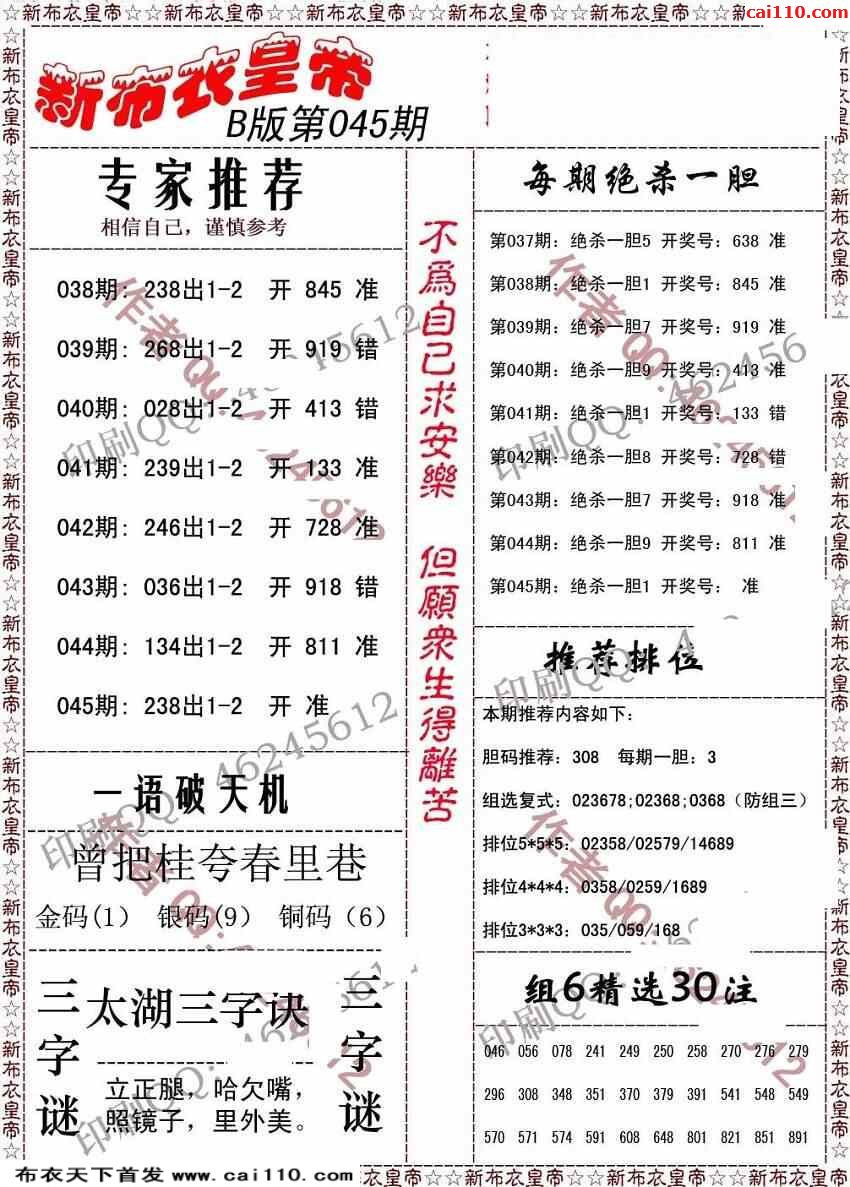 ☆☆新布衣皇帝☆☆新布衣皇帝☆☆新布衣皇帝☆☆新布衣皇帝☆☆新布衣皇帝☆☆新
cai110.com
新布衣皇帝
B版第045期
专家推荐
相信自己，谨慎参考
038期: 238出1-2 开 845 准
039期: 268出1-2 开 919 错
040期: 028出1-2 开 413 错
041期: 239出1-2 开 133 准
042期: 246出1-2 开 728 准
043期: 036出1-2 开 918 错
044期: 134出1-2 开 811 准
045期: 238出1-2 开 准
一语破天机
曾把桂夸春里巷
金码(1) 银码(9) 铜码（6）
三字谜
太湖三字诀
立正腿，哈欠嘴，
照镜子，里外美。
三字谜
不為自己求安樂 但願衆生得離苦
每期绝杀一胆
第037期: 绝杀一胆5 开奖号: 638 准
第038期: 绝杀一胆1 开奖号: 845 准
第039期: 绝杀一胆7 开奖号: 919 准
第040期: 绝杀一胆9 开奖号: 413 准
第041期: 绝杀一胆1 开奖号: 133 错
第042期: 绝杀一胆8 开奖号: 728 错
第043期: 绝杀一胆7 开奖号: 918 准
第044期: 绝杀一胆9 开奖号: 811 准
第045期: 绝杀一胆1 开奖号: 准
推荐排位
本期推荐内容如下:
胆码推荐: 308 每期一胆: 3
组选复式: 023678;02368;0368（防组三）
排位5*5*5: 02358/02579/14689
排位4*4*4: 0358/0259/1689
排位3*3*3: 035/059/168
组6精选30注
046 056 078 241 249 250 258 270 276 279
296 308 348 351 370 379 391 541 548 549
570 571 574 591 608 648 801 821 851 891
布衣天下首发 www.cai110.com
☆新布衣皇帝☆☆新布衣皇帝☆☆新布衣皇帝☆☆新布衣皇帝☆